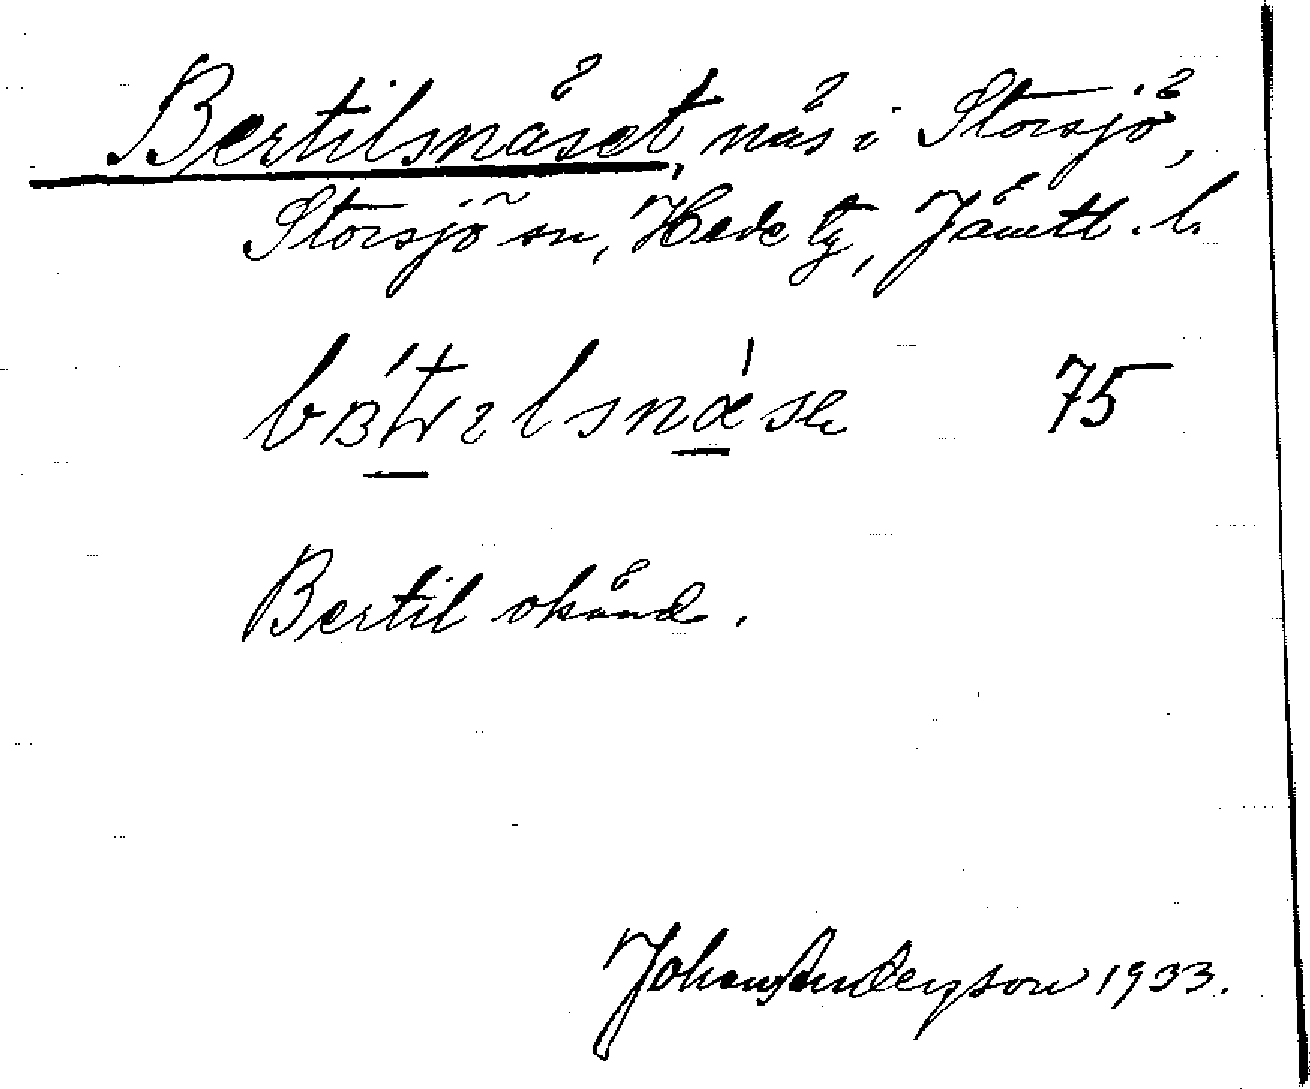 Bertilsnäset, näs i Storsjö,
Storsjö sn, Hede tg, Jämtl. l.
75
Bertil okänd.
Johan Anderson 1933.